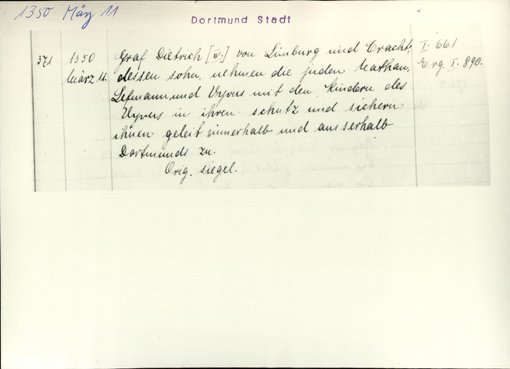 1350 März 11
Dortmund Stadt
371 1350 Graf Dietrich [v:] von Limburg und Cracht, I. 661
März 11. dessen sohn, nehmen die juden Nathan, Erg. I. 890.
Lefmann und Vyvus mit den kindern des
Vyvus in ihren schutz und sichern
ihnen geleit innerhalb und ausserhalb
Dortmunds zu.
Orig. siegel.